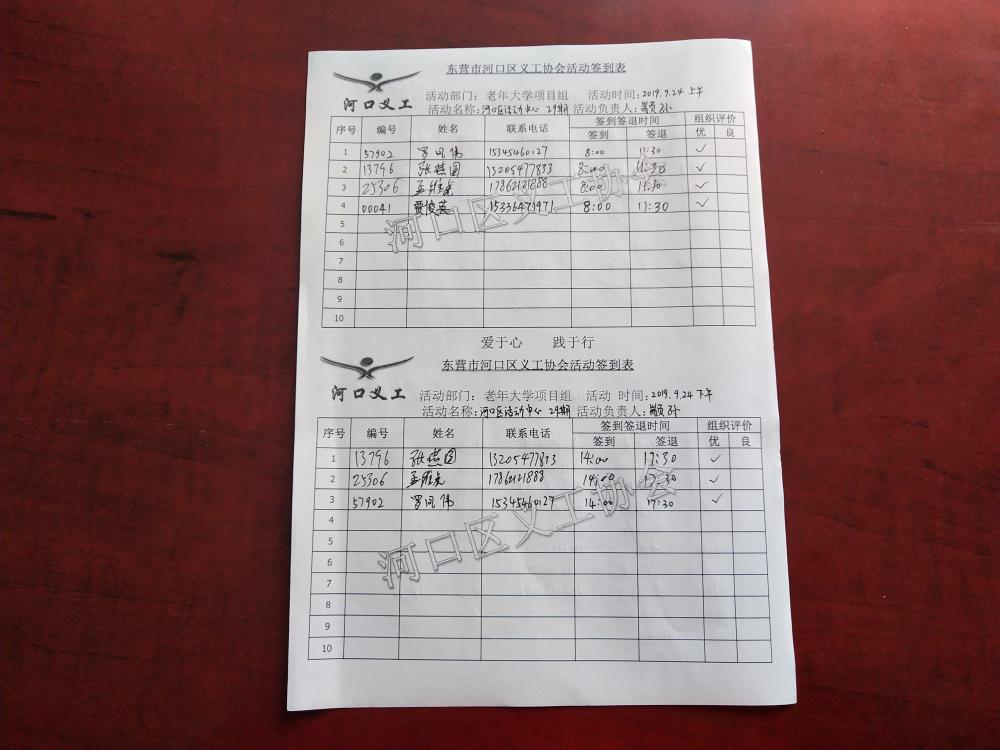 东营市河口区义工协会活动签到表
河口义工
活动部门： 老年大学项目组 活动时间：2019.9.24 上午
活动名称：河口区活动中心 29期 活动负责人：
序号 编号 姓名 联系电话 签到签退时间 组织评价
签到 签退 优 良
1 57902 罗凤伟 15345460127 8:00 11:30 ✓
2 13796 张燕国 13205477833 8:00 11:30 ✓
3 25306 孟维 17862121888 8:00 11:30 ✓
4 00041 贾俊英 15336471971 8:00 11:30 ✓
5
6
7
8
9
10
河口区义工协会
爱于心 践于行
东营市河口区义工协会活动签到表
河口义工
活动部门： 老年大学项目组 活动 时间：2019.9.24 下午
活动名称：河口区活动中心 29期 活动负责人：
序号 编号 姓名 联系电话 签到签退时间 组织评价
签到 签退 优 良
1 13796 张燕国 13205477833 14:00 17:30 ✓
2 25306 孟维 17862121888 14:00 17:30 ✓
3 57902 罗凤伟 15345460127 14:00 17:30 ✓
4
5
6
7
8
9
10
河口区义工协会